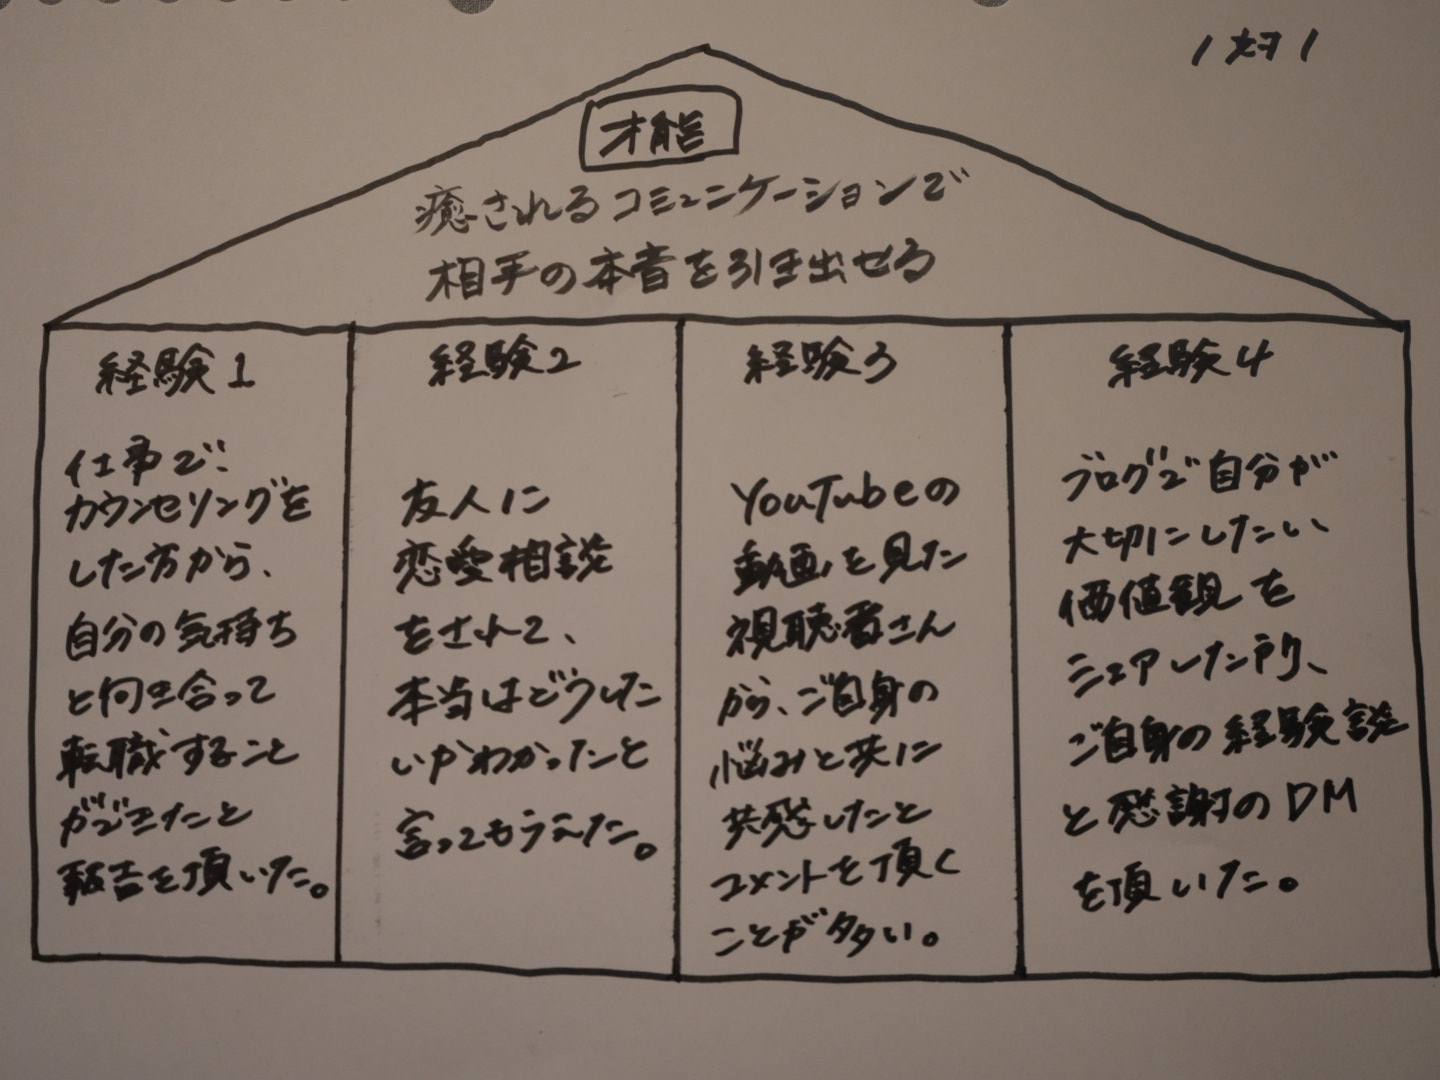 1対1
才能
癒されるコミュニケーションで
相手の本音を引き出せる
経験1
仕事で、
カウンセリングを
した方から、
自分の気持ち
と向き合って
転職すること
ができたと
報告を頂いた。
経験2
友人に
恋愛相談
をされて、
本当はどうした
いかわかったと
言ってもらえた。
経験3
YouTubeの
動画を見た
視聴者さん
から、ご自身の
悩みと共に
共感したと
コメントを頂く
ことが多い。
経験4
ブログで自分が
大切にしたい、
価値観を
シェアした所、
ご自身の経験談
と感謝のDM
を頂いた。